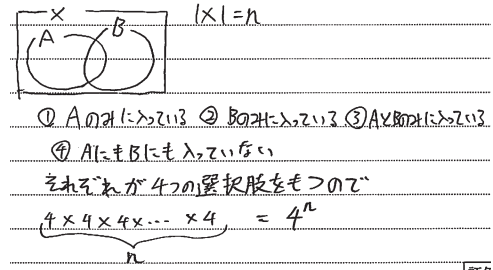 X
A B |X|=n
① Aのみに入っている ② Bのみに入っている ③ AとBのみに入っている
④ AにもBにも入っていない
それぞれが4つの選択肢をもつので
4×4×4×… ×4 = 4ⁿ
n